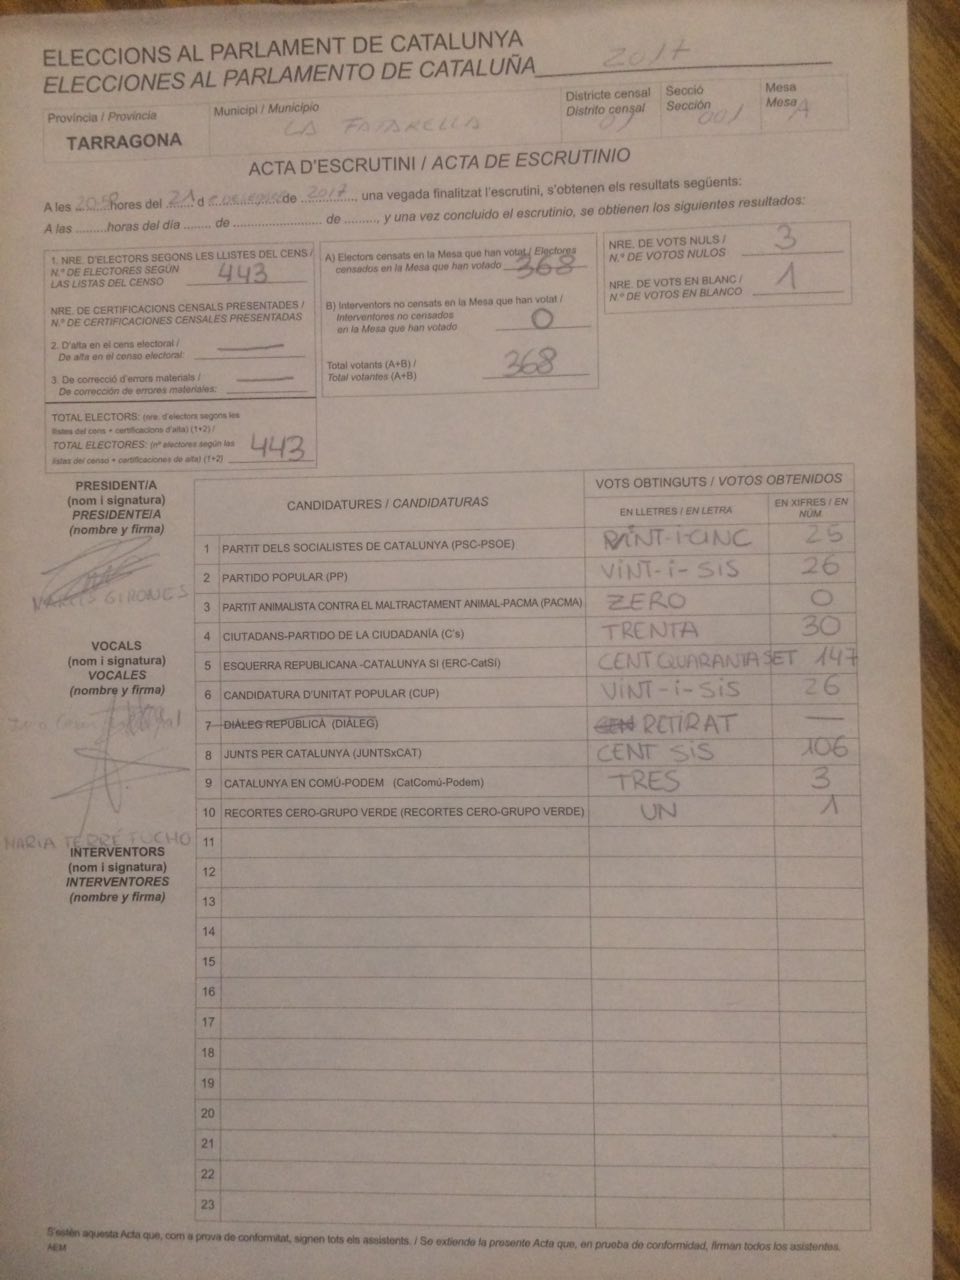 ELECCIONS AL PARLAMENT DE CATALUNYA
ELECCIONES AL PARLAMENTO DE CATALUÑA 2017
Província / Provincia
TARRAGONA
Municipi / Municipio
LA FATARELLA
Districte censal
Distrito censal
01
Secció
Sección
001
Mesa
Mesa A
ACTA D'ESCRUTINI / ACTA DE ESCRUTINIO
A les 20:58 hores del 21 d e desembre de 2017, una vegada finalitzat l'escrutini, s'obtenen els resultats següents:
A las ........horas del día ........ de ........................ de ........, y una vez concluido el escrutinio, se obtienen los siguientes resultados:
1. NRE. D'ELECTORS SEGONS LES LLISTES DEL CENS /
N.º DE ELECTORES SEGÚN
LAS LISTAS DEL CENSO 443
NRE. DE CERTIFICACIONS CENSALS PRESENTADES /
N.º DE CERTIFICACIONES CENSALES PRESENTADAS
2. D'alta en el cens electoral /
De alta en el censo electoral: —
3. De correcció d'errors materials /
De corrección de errores materiales: —
TOTAL ELECTORS: (nre. d'electors segons les
llistes del cens + certificacions d'alta) (1+2) /
TOTAL ELECTORES: (nº electores según las
listas del censo + certificaciones de alta) (1+2) 443
A) Electors censats en la Mesa que han votat / Electores
censados en la Mesa que han votado 368
B) Interventors no censats en la Mesa que han votat /
Interventores no censados
en la Mesa que han votado 0
Total votants (A+B) /
Total votantes (A+B) 368
NRE. DE VOTS NULS /
N.º DE VOTOS NULOS 3
NRE. DE VOTS EN BLANC /
N.º DE VOTOS EN BLANCO 1
PRESIDENT/A
(nom i signatura)
PRESIDENTE/A
(nombre y firma)
NARCÍS GIRONES
VOCALS
(nom i signatura)
VOCALES
(nombre y firma)
MARIA TERRÉ
INTERVENTORS
(nom i signatura)
INTERVENTORES
(nombre y firma)
CANDIDATURES / CANDIDATURAS
VOTS OBTINGUTS / VOTOS OBTENIDOS
EN LLETRES / EN LETRA
EN XIFRES / EN NÚM.
1 PARTIT DELS SOCIALISTES DE CATALUNYA (PSC-PSOE) VINT-I-CINC 25
2 PARTIDO POPULAR (PP) VINT-i-SIS 26
3 PARTIT ANIMALISTA CONTRA EL MALTRACTAMENT ANIMAL-PACMA (PACMA) ZERO 0
4 CIUTADANS-PARTIDO DE LA CIUDADANÍA (C's) TRENTA 30
5 ESQUERRA REPUBLICANA -CATALUNYA SI (ERC-CatSí) CENT QUARANTA SET 147
6 CANDIDATURA D'UNITAT POPULAR (CUP) VINT-i-SIS 26
7 DIÀLEG REPUBLICÀ (DIÀLEG) RETIRAT —
8 JUNTS PER CATALUNYA (JUNTSxCAT) CENT SIS 106
9 CATALUNYA EN COMÚ-PODEM (CatComú-Podem) TRES 3
10 RECORTES CERO-GRUPO VERDE (RECORTES CERO-GRUPO VERDE) UN 1
11
12
13
14
15
16
17
18
19
20
21
22
23
S'estén aquesta Acta que, com a prova de conformitat, signen tots els assistents. / Se extiende la presente Acta que, en prueba de conformidad, firman todos los asistentes.
AEM